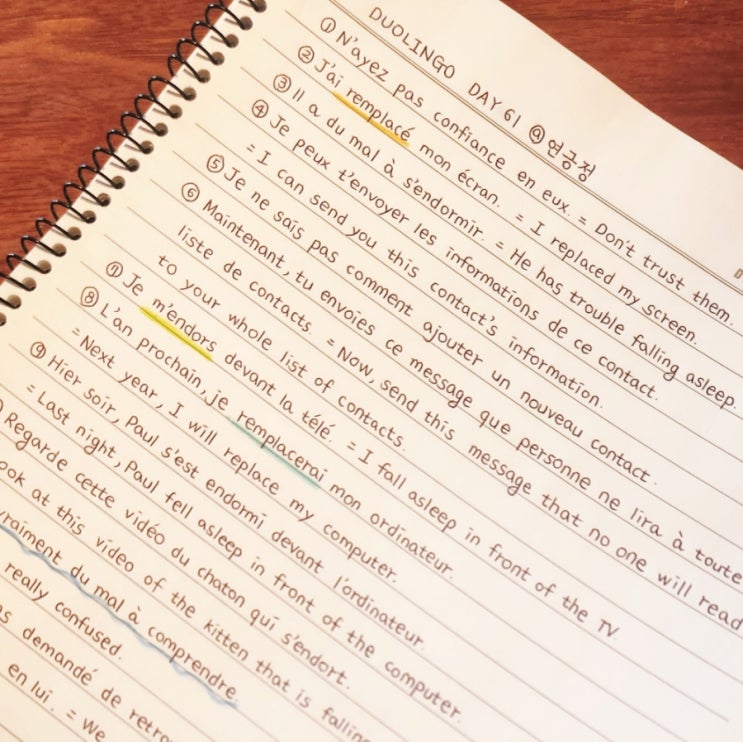 DUOLINGO DAY 61 @연긍정
① N'ayez pas confiance en eux. = Don't trust them.
② J'ai remplacé mon écran. = I replaced my screen.
③ Il a du mal à s'endormir. = He has trouble falling asleep.
④ Je peux t'envoyer les informations de ce contact.
= I can send you this contact's information.
⑤ Je ne sais pas comment ajouter un nouveau contact.
⑥ Maintenant, tu envoies ce message que personne ne lira à toute
liste de contacts. = Now, send this message that no one will read
to your whole list of contacts.
⑦ Je m'endors devant la télé. = I fall asleep in front of the TV.
⑧ L'an prochain, je remplacerai mon ordinateur.
= Next year, I will replace my computer.
⑨ Hier soir, Paul s'est endormi devant l'ordinateur.
= Last night, Paul fell asleep in front of the computer.
Regarde cette vidéo du chaton qui s'endort.
ook at this video of the kitten that is falling
vraiment du mal à comprendre.
really confused.
demandé de retro
en lui. = We